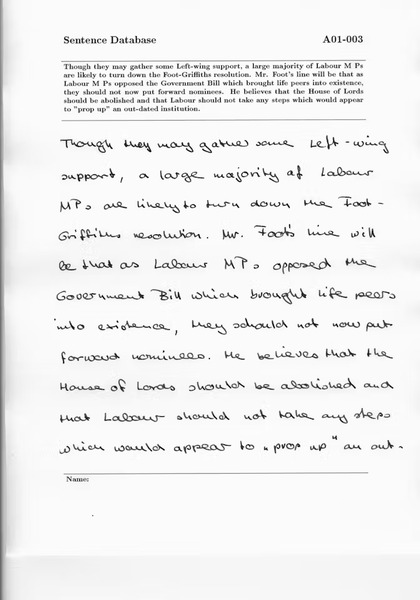 Sentence Database A01-003
Though they may gather some Left-wing support, a large majority of Labour M Ps
are likely to turn down the Foot-Griffiths resolution. Mr. Foot's line will be that as
Labour M Ps opposed the Government Bill which brought life peers into existence,
they should not now put forward nominees. He believes that the House of Lords
should be abolished and that Labour should not take any steps which would appear
to "prop up" an out-dated institution.
Though they may gather some Left-wing
support, a large majority of Labour
MPs are likely to turn down the Foot-
Griffiths resolution. Mr. Foot's line will
be that as Labour MPs opposed the
Government Bill which brought life peers
into existence, they schould not now put
forward nominees. He believes that the
House of Lords should be abolished and
that Labour should not take any steps
which would appear to „prop up" an out-
Name: